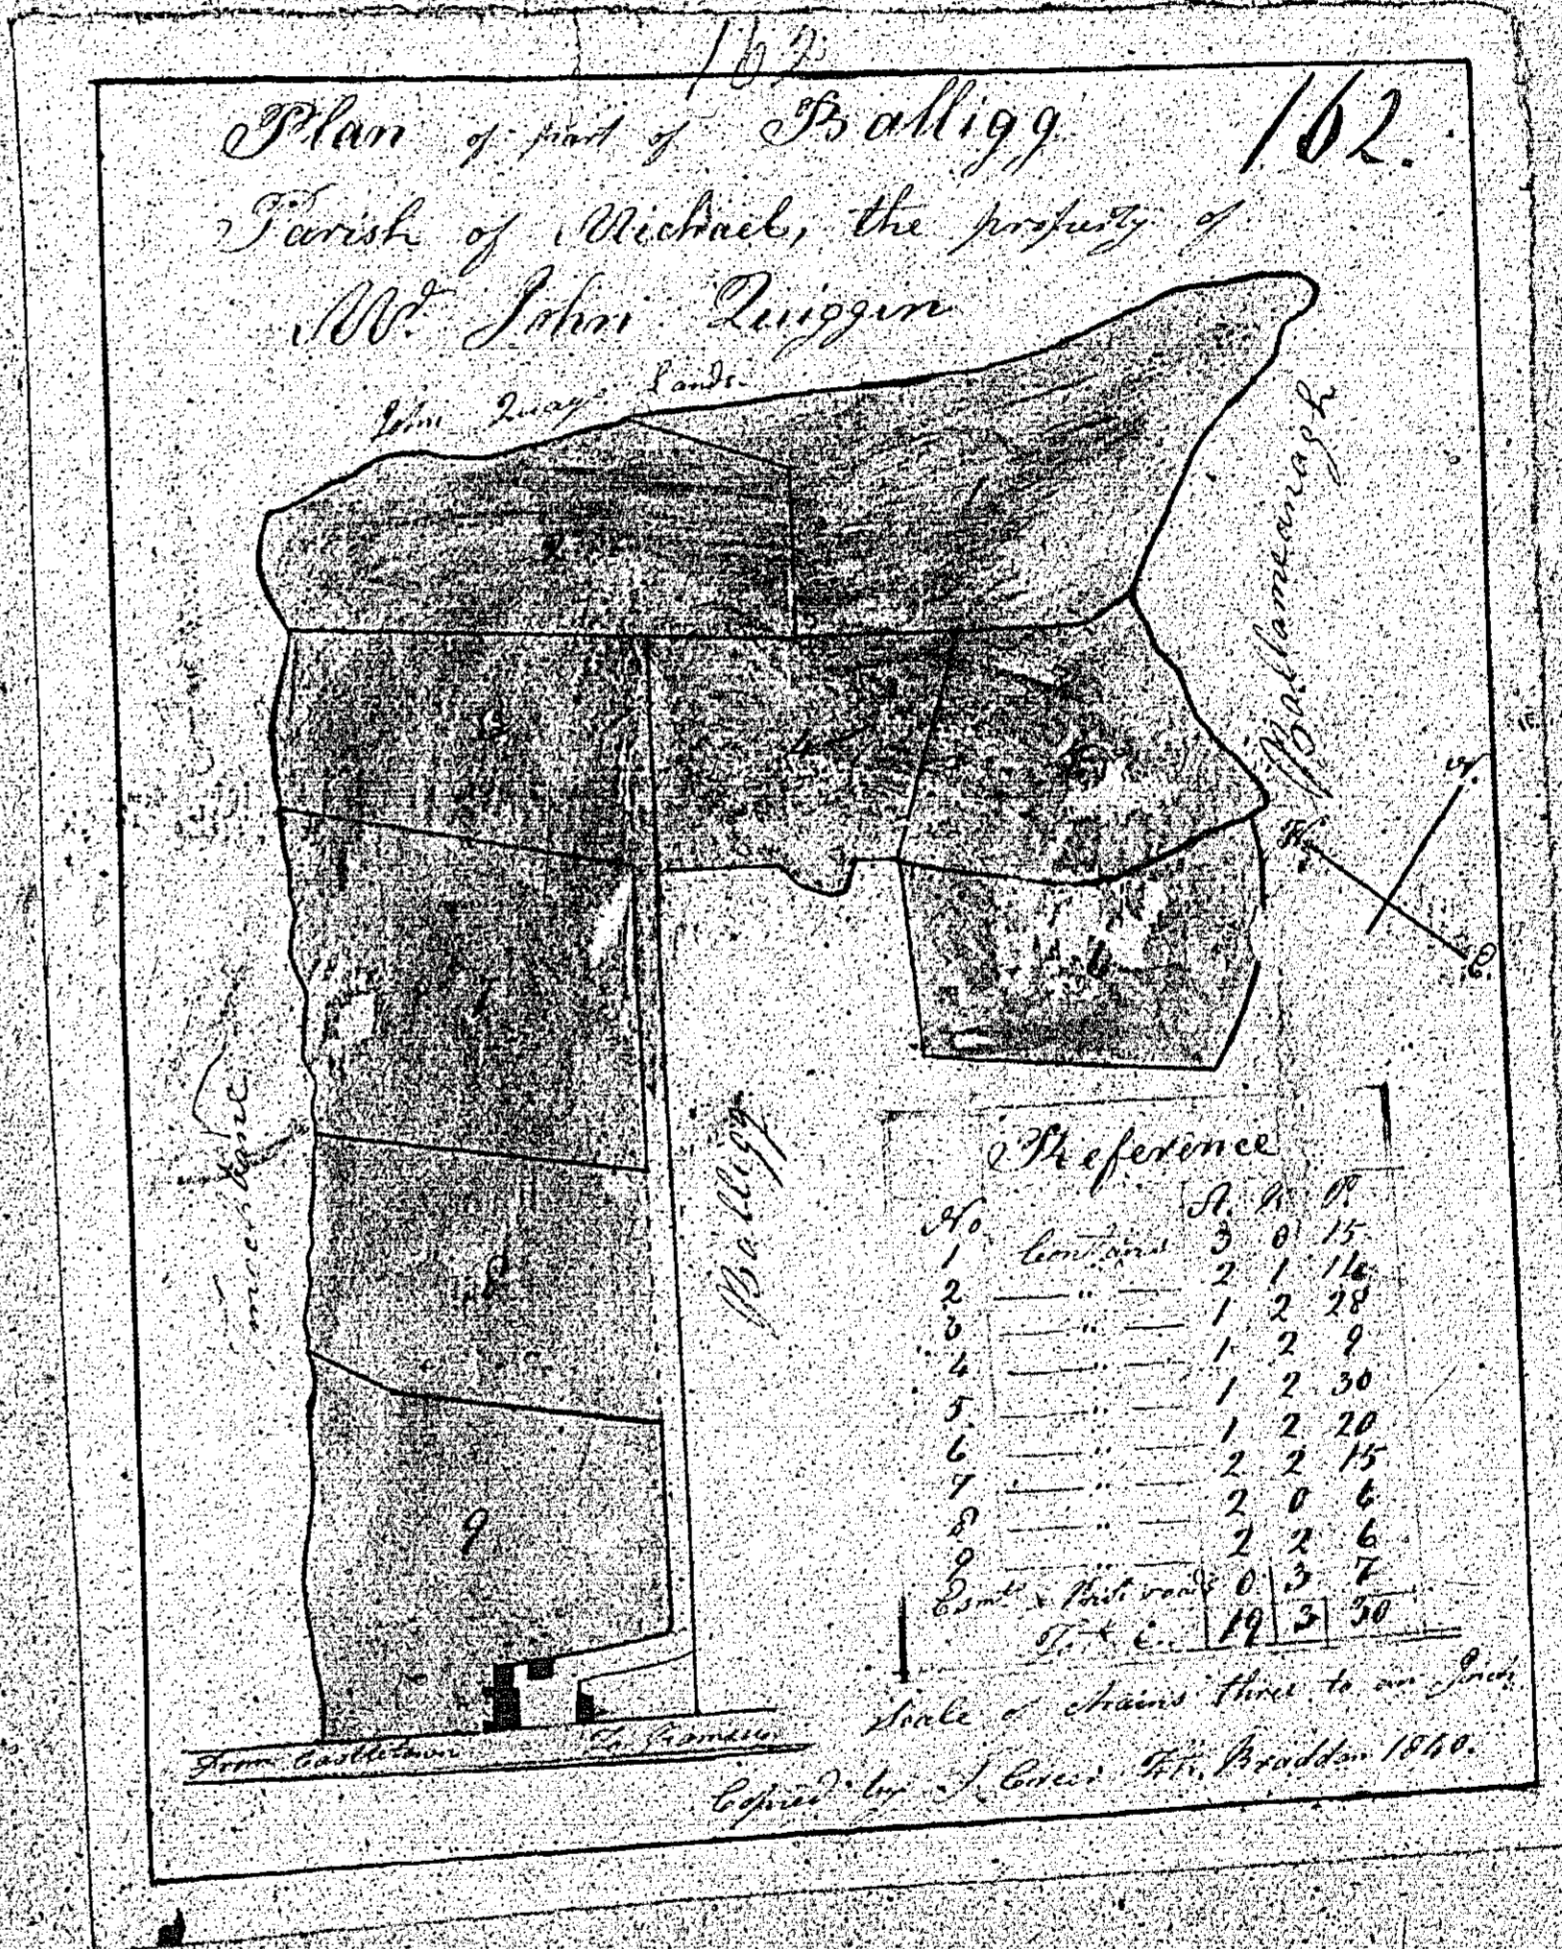 162
162.
Plan of part of Balligg
Parish of Michael, the property of
Mr. John Quiggin
John Quay Lands.
Ballameanagh
1
2
3
4
5
6
7
8
9
N.
W.
E.
Balligg
Lane
Reference
No A. R. P.
1 Contains 3 0 15
2 — " — 2 1 14
3 — " — 1 2 28
4 — " — 1 2 9
5 — " — 1 2 30
6 — " — 1 2 20
7 — " — 2 2 15
8 — " — 2 0 6
9 — " — 2 2 6
roads 0 3 7
19 3 30
Scale of chains three to an Inch
From Castletown To Ramsey
Copied by J Braddan 1860.